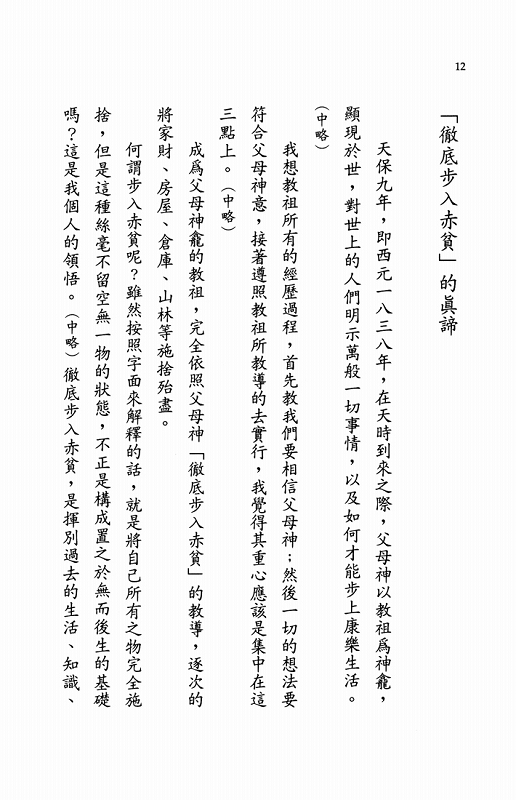 12
「徹底步入赤貧」的眞諦
天保九年，即西元一八三八年，在天時到來之際，父母神以教祖爲神龕，
顯現於世，對世上的人們明示萬般一切事情，以及如何才能步上康樂生活。
（中略）
我想教祖所有的經歷過程，首先教我們要相信父母神；然後一切的想法要
符合父母神意，接著遵照教祖所教導的去實行，我覺得其重心應該是集中在這
三點上。（中略）
成爲父母神龕的教祖，完全依照父母神「徹底步入赤貧」的教導，逐次的
將家財、房屋、倉庫、山林等施捨殆盡。
何謂步入赤貧呢？雖然按照字面來解釋的話，就是將自己所有之物完全施
捨，但是這種絲毫不留空無一物的狀態，不正是構成置之於無而後生的基礎
嗎？這是我個人的領悟。（中略）徹底步入赤貧，是揮別過去的生活、知識、